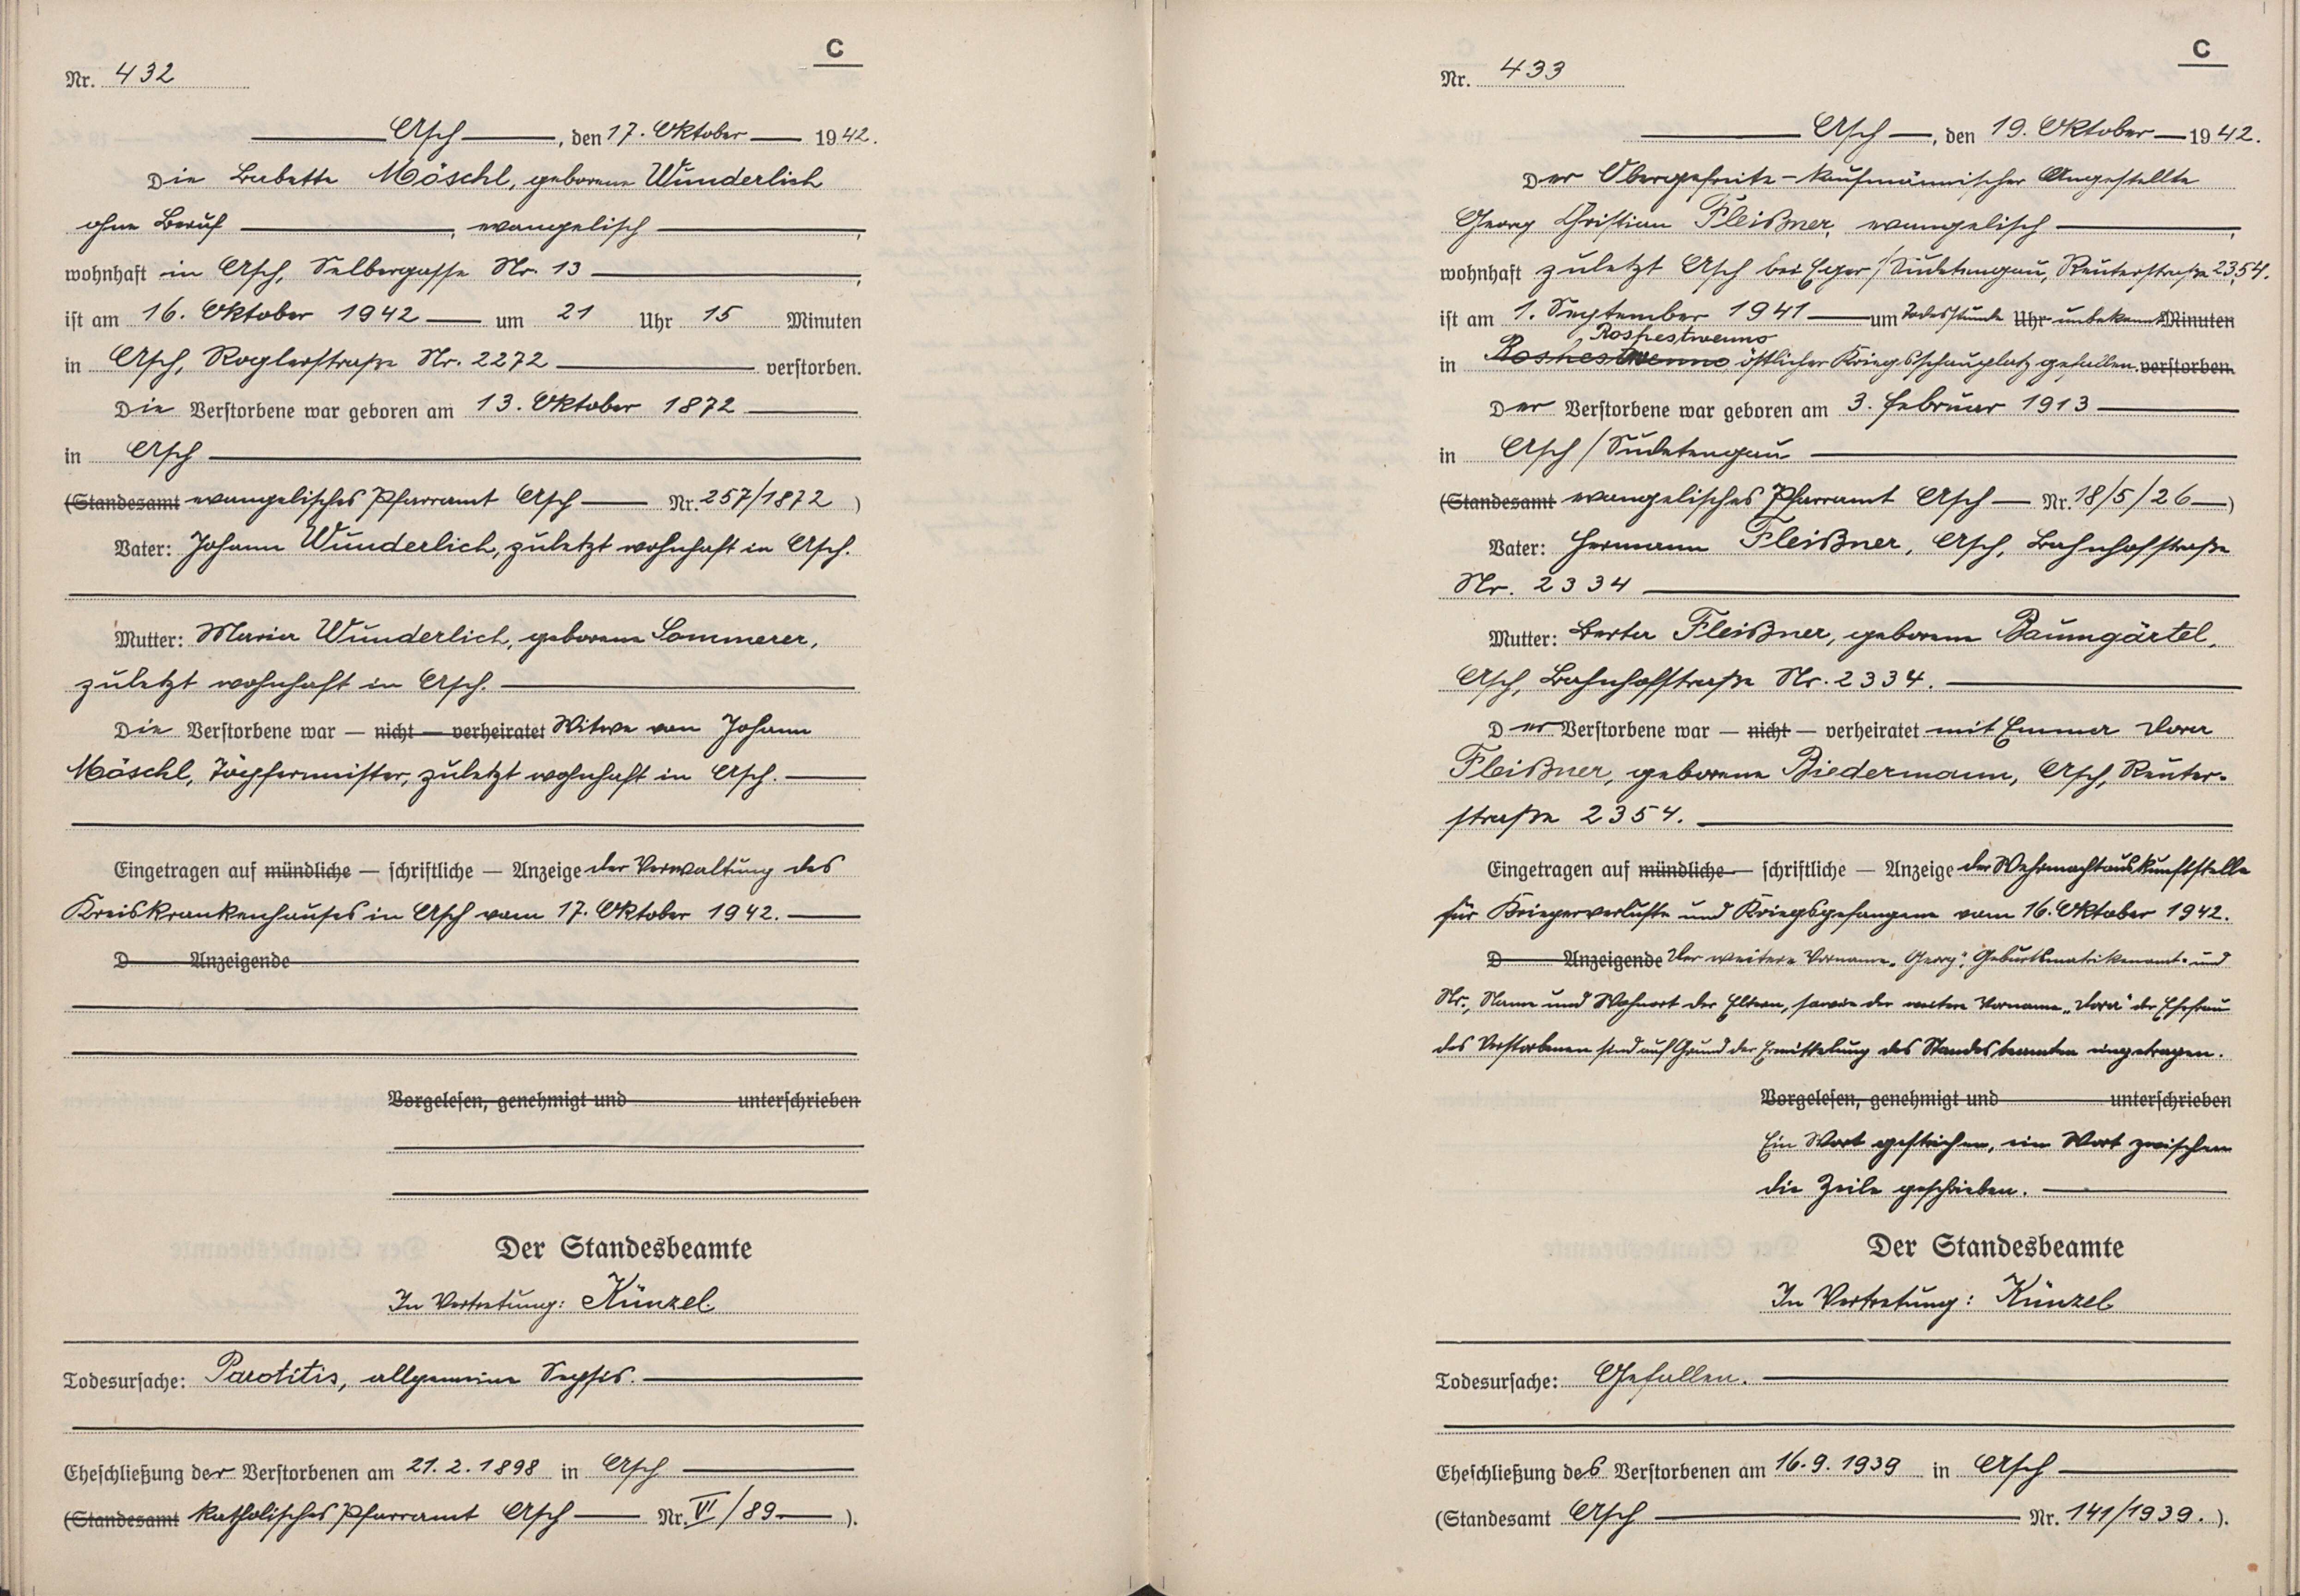 C
Nr. 432
Asch, den 17. Oktober 1942.
Die Babette Möschl, geborene Wunderlich
ohne Beruf, evangelisch,
wohnhaft in Asch, Selbergasse Nr. 13,
ist am 16. Oktober 1942 um 21 Uhr 15 Minuten
in Asch, Roglerstraße Nr. 2272 verstorben.
Die Verstorbene war geboren am 13. Oktober 1872
in Asch
(Standesamt evangelisches Pfarramt Asch Nr. 257/1872)
Vater: Johann Wunderlich, zuletzt wohnhaft in Asch.
Mutter: Maria Wunderlich, geborene Sommerer,
zuletzt wohnhaft in Asch.
Die Verstorbene war — nicht — verheiratet Witwe von Johann
Möschl, Töpfermeister, zuletzt wohnhaft in Asch.
Eingetragen auf mündliche — schriftliche — Anzeige der Verwaltung des
Kreiskrankenhauses in Asch vom 17. Oktober 1942.
D Anzeigende
Vorgelesen, genehmigt und unterschrieben
Der Standesbeamte
In Vertretung: Künzel.
Todesursache: Parotitis, allgemeine Sepsis.
Eheschließung der Verstorbenen am 21.2.1898 in Asch
(Standesamt katholisches Pfarramt Asch Nr. VI/89).
C
Nr. 433
Asch, den 19. Oktober 1942.
Der Obergefreite - kaufmännischer Angestellte
Georg Christian Fleißner, evangelisch,
wohnhaft zuletzt Asch bei Eger/Sudetengau, Reuterstraße 2354.
ist am 1. September 1941 um Todesstunde Uhr unbekannt Minuten
Roshestwenno
in Roshestwenno, östlicher Kriegsschauplatz gefallen. verstorben.
Der Verstorbene war geboren am 3. Februar 1913
in Asch/Sudetengau
(Standesamt evangelisches Pfarramt Asch — Nr. 18/5/26)
Vater: Hermann Fleißner, Asch, Bahnhofstraße
Nr. 2334
Mutter: Berta Fleißner, geborene Baumgärtel,
Asch, Bahnhofstraße Nr. 2334.
Der Verstorbene war — nicht — verheiratet mit Emma Dora
Fleißner, geborene Biedermann, Asch, Reuter-
straße 2354.
Eingetragen auf mündliche — schriftliche — Anzeige der Wehrmachtauskunftstelle
für Kriegerverluste und Kriegsgefangene vom 16. Oktober 1942.
D Anzeigende Der weitere Vorname „Georg", Geburtsmatrikenamt- und
Nr., Name und Wohnort der Eltern, sowie der weitere Vorname „Dora" der Ehefrau
des Verstorbenen sind auf Grund der Ermittelung des Standesbeamten eingetragen.
Vorgelesen, genehmigt und unterschrieben
Ein Wort gestrichen, ein Wort zwischen
die Zeile geschrieben.
Der Standesbeamte
In Vertretung: Künzel
Todesursache: Gefallen.
Eheschließung des Verstorbenen am 16.9.1939 in Asch
(Standesamt Asch Nr. 141/1939.).